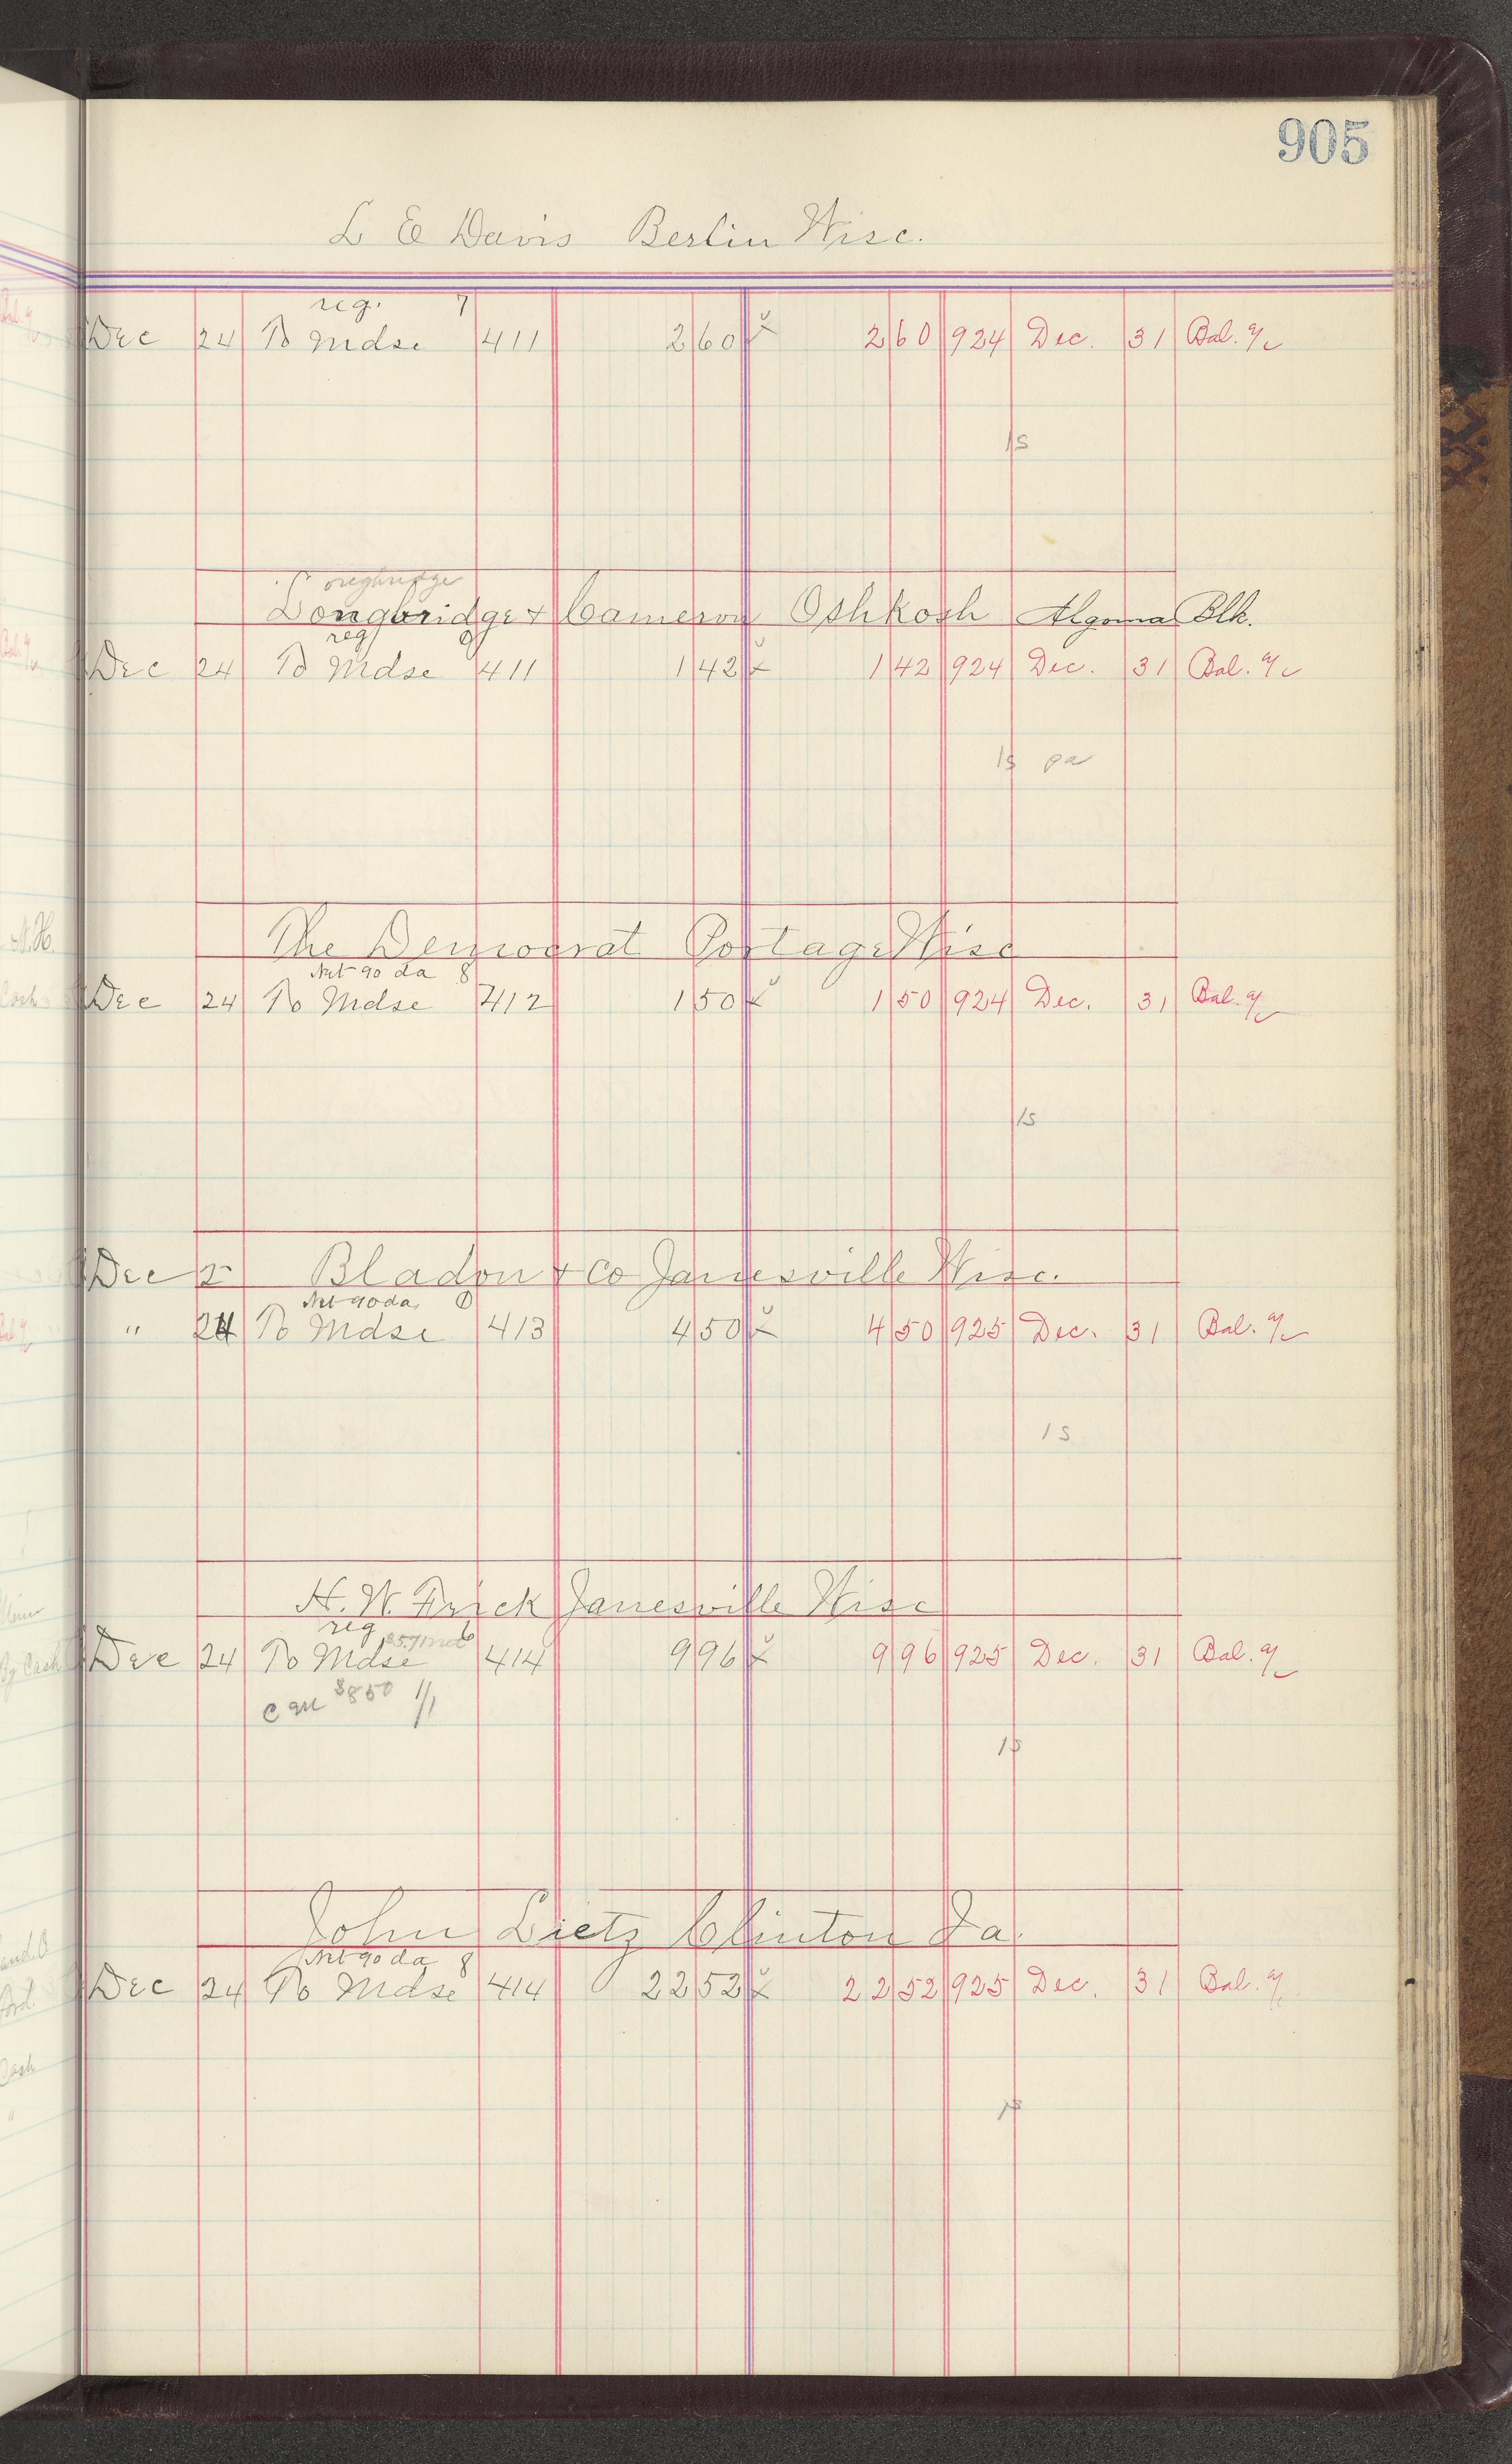 905
L E Davis Berlin Wisc.
reg. 7
Dec 24 To Mdse 411 2 60 2 60 924 Dec. 31 Bal. a/c
1s
oughridge
Longbridge & Cameron Oshkosh Algoma Blk.
reg
Dec 24 To Mdse 411 1 42 1 42 924 Dec. 31 Bal. a/c
1s pa
The Democrat Portage Wisc
Net 90 da 8
Dec 24 To Mdse 412 1 50 1 50 924 Dec. 31 Bal. a/c
1s
Dec 2 Bladon & Co Janesville Wisc.
Net 90 da,
" 24 To Mdse 413 4 50 4 50 925 Dec. 31 Bal. a/c
1s
H. W. Frick Janesville Wisc
reg 6
Dec 24 To Mdse 414 9 96 9 96 925 Dec. 31 Bal. a/c
$850 1/1
1s
John Lietz Clinton Ia.
Net 90 da 8
Dec 24 To Mdse 414 22 52 22 52 925 Dec. 31 Bal. a/c
1s